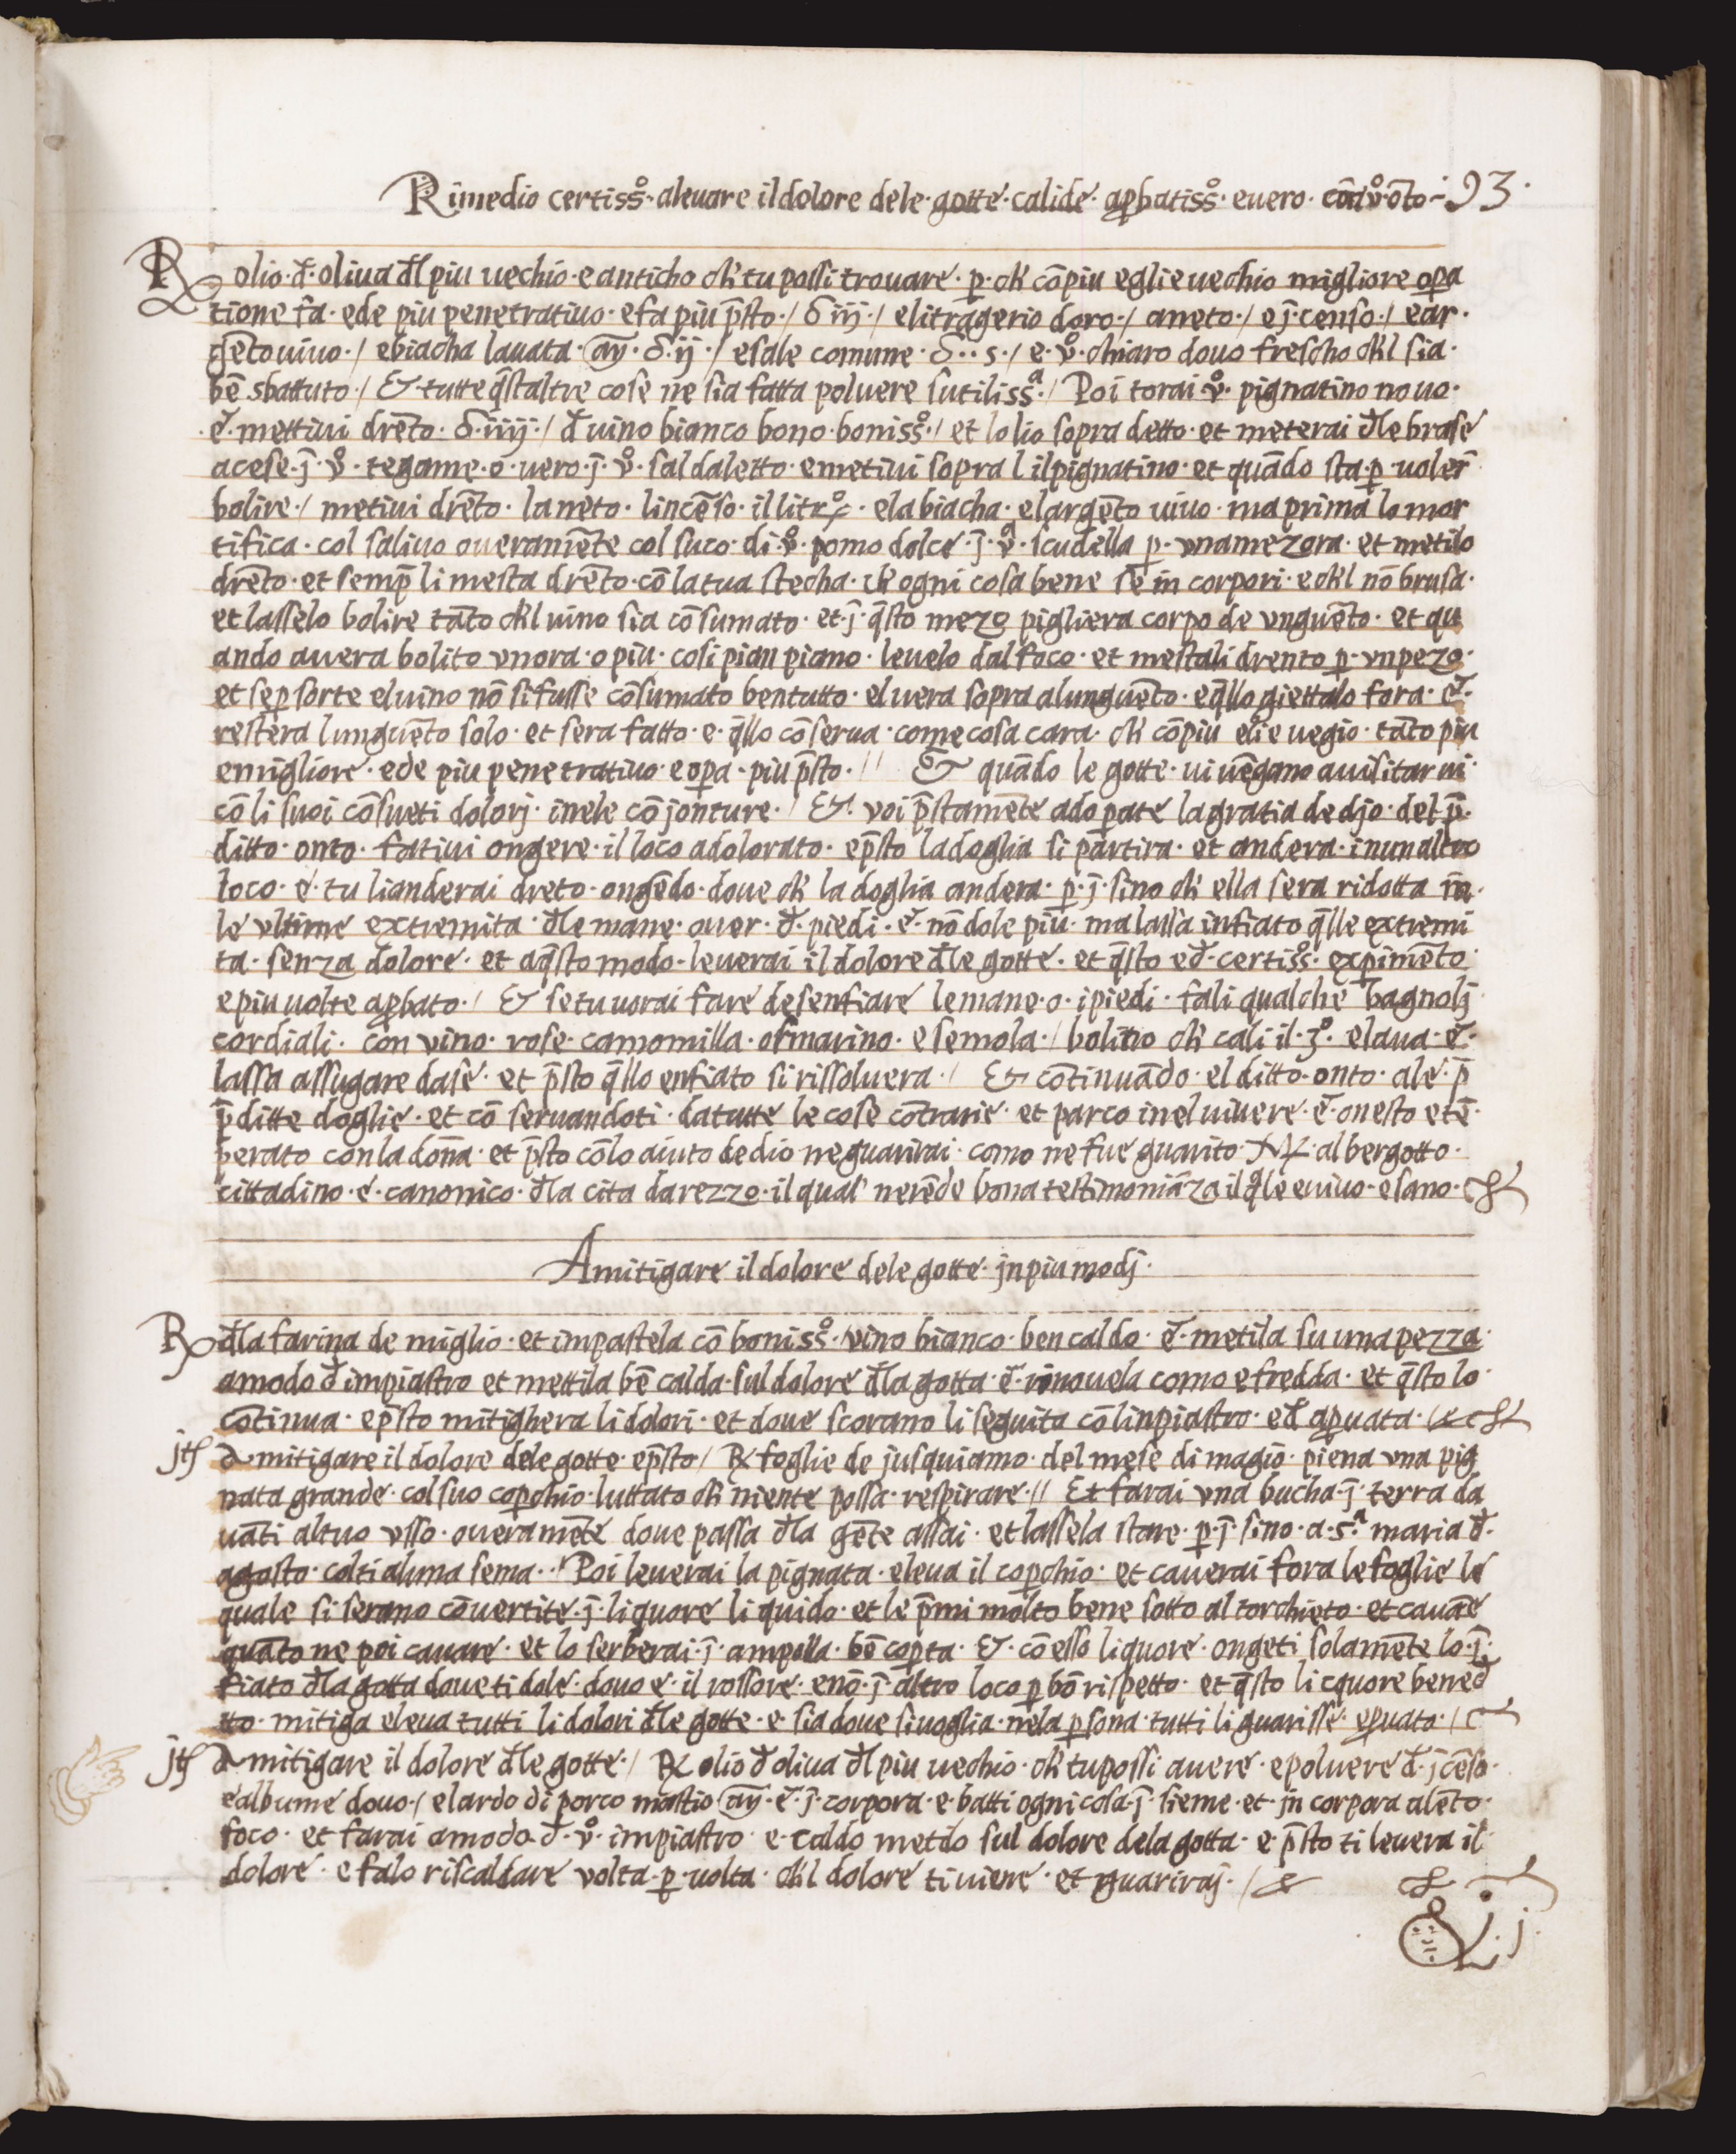 Rimedio certissº· alevare il dolore dele· gotte· calide· aꝓbatissº· e vero· cō vº· ōto· 93·
℞ olio· đ· oliva đl piu vechio· e anticho ch' tu possi trovare· ꝑ· ch' cō piu egli e vechio migliore oꝑa
tione fa· ede piu penetrativo· e fa piu p̄sto·/ ʒ iij·/ e litragerio doro·/ aneto·/ e j̄·censo·/ e ar·
gēto vivo·/ e biacha lavata· aȳ· ʒ· ij·/ e sale comune· ʒ·· s·/ e· vº· chiaro dovo frescho ch'l sia·
bē sbattuto·/ & tutte q̄staltre cose ne sia fatta polvere sutilissª·/ Poi torai· vº· pignatino novo·
·e· mettivi drēto· ʒ· iiij·/ đ vino bianco bono· bonissº·/ et lolio sopra detto· et meterai đle brase
acese· j̄· vº· tegame· o· vero· j̄· vº· scaldaletto· e metivi sopra l il pignatino· et quādo sta· ꝑ· voler̄
bolire·/ metivi drēto· laneto· lincēso· il litrº· e la biacha· e largēto vivo· ma prima lo mor
tifica· col salivo overamēte col suco· di· vº· pomo dolce· j̄· vª· scudella ꝑ· vna mezora· et metilo
drēto· et semp̄ li mesta drēto· cō la tua stecha· ch' ogni cosa bene se in corpori· e ch'l nō brusa·
et lasselo bolire tāto ch'l vino sia cōsumato· et· j̄· q̄sto mezo pigliera corpo de vnguēto· et qu
ando avera bolito vnora· o piu· cosi pian piano· levelo dal foco· et mestali drento ꝑ· vn pezo·
et se ꝑ sorte el vino nō si fusse cōsumato ben tutto· el vera sopra a lunguēto· e q̄llo giettalo fora· e·
restera lunguēto solo· et sera fatto· e· q̄llo cōserva· come cosa cara· ch' cō piu eli e vegio· tāto piu
e migliore· ede piu penetrativo· e oꝑa· piu p̄sto·// & quādo le gotte· vi vēgano a visitarvi
cō li suoi cōsueti dolorj· inele cōjonture·/ &· voi p̄stamēte adoꝑate la gratia de djo· del p̄·
ditto· onto· fativi ongere· il loco adolorato· e p̄sto la doglia si partira· et andera· in un altro
loco· e· tu li anderai dreto· ongēdo· dove ch' la doglia andera· ꝑ· j̄· sino ch' ella sera ridotta in·
le vltime extremita đle mane· over· đ· piedi· e· nō dole piu· ma lassa infiato q̄lle extremi
ta· senza dolore· et a q̄sto modo· leverai il dolore đle gotte· et q̄sto eđ· certissº· exꝑimēto
e piu volte aꝓbato·/ & se tu vorai fare desenfiare le mane· o· i piedi· fali qualche bagnolj
cordiali· con vino· rose· camomilla· osmarino· e semola·/ bolito ch' cali il· 3º· e lava· e·
lassa assugare da se· et p̄sto q̄llo enfiato si rissolvera·/ & cōtinuādo· el ditto· onto· ale· p̄
p̄ditte doglie· et cō servandoti· da tutte le cose cōtrarie· et parco inel vivere· e· onesto e tē·
perato con la dōna· et p̄sto cō lo aiuto de dio ne guarirai· como ne fue guarito albergotto·
cittadino· e· canonico· đla cita darezzo· il qual' ne rēde bona testimoniāza il q̄le e vivo· e sano·
A mitigare il dolore dele gotte· jn piu modj·
℞ đla farina de miglio· et impastela cō bonissº· vino bianco· ben caldo· e· metila su una pezza
a modo đ impiastro et mettila bē calda· sul dolore đla gotta· e· rinovela como e fredda· et q̄sto lo·
cōtinua· e p̄sto mitighera li dolori· et dove scorano li seguita cō linpiastro· eđ aꝓvata·
jtē A mitigare il dolore dele gotte· e p̄sto/ ℞ foglie de jusquiamo· del mese di magio· piena vna pig
nata grande· col suo coꝑchio· luttato ch' niente possa· respirare·// Et farai vna bucha· j̄· terra da
vāti al tuo vsso· overamēte dove passa đla gēte assai· et lassela stare· ꝑ· j̄· sino· a· sª· maria đ·
agosto· Poi leverai la pignata· e leva il coꝑchio· et caverai fora le foglie le
quale si serano cōvertite· j̄· liquore liquido· et le p̄mi molto bene sotto al torchieto· et cavāe
quāto ne poi cavare· et lo serberai· j̄· ampolla· bē coꝑta· &· cō esso liquore· ongeti solamēte lo· j̄·
fiato đla gotta dove ti dole· dove e· il rossore· e nō· j̄· altro loco ꝑ bō rispetto· et q̄sto licquore beneđ
tto· mitiga e leva tutti li dolori đle gotte· e· sia dove si voglia· nela ꝑsona· tutti li guarisse· e ꝓvato·/
jtē A mitigare il dolore đle gotte·/ ℞ olio đ oliva đl piu vechio· ch' tu possi avere· e polvere đ· j̄cēso·
e albume dovo·/ e lardo di porco mastio aȳ· e· j̄· corpora· e· batti ogni cosa· j̄· sieme· et· jn corpora a lēto·
foco· et farai a modo· đ· vº· impiastro· e· caldo metilo sul dolore dela gotta· e· p̄sto ti levera il
dolore· e falo riscaldare volta· ꝑ· volta· ch'l dolore ti viene· et guarirai·/